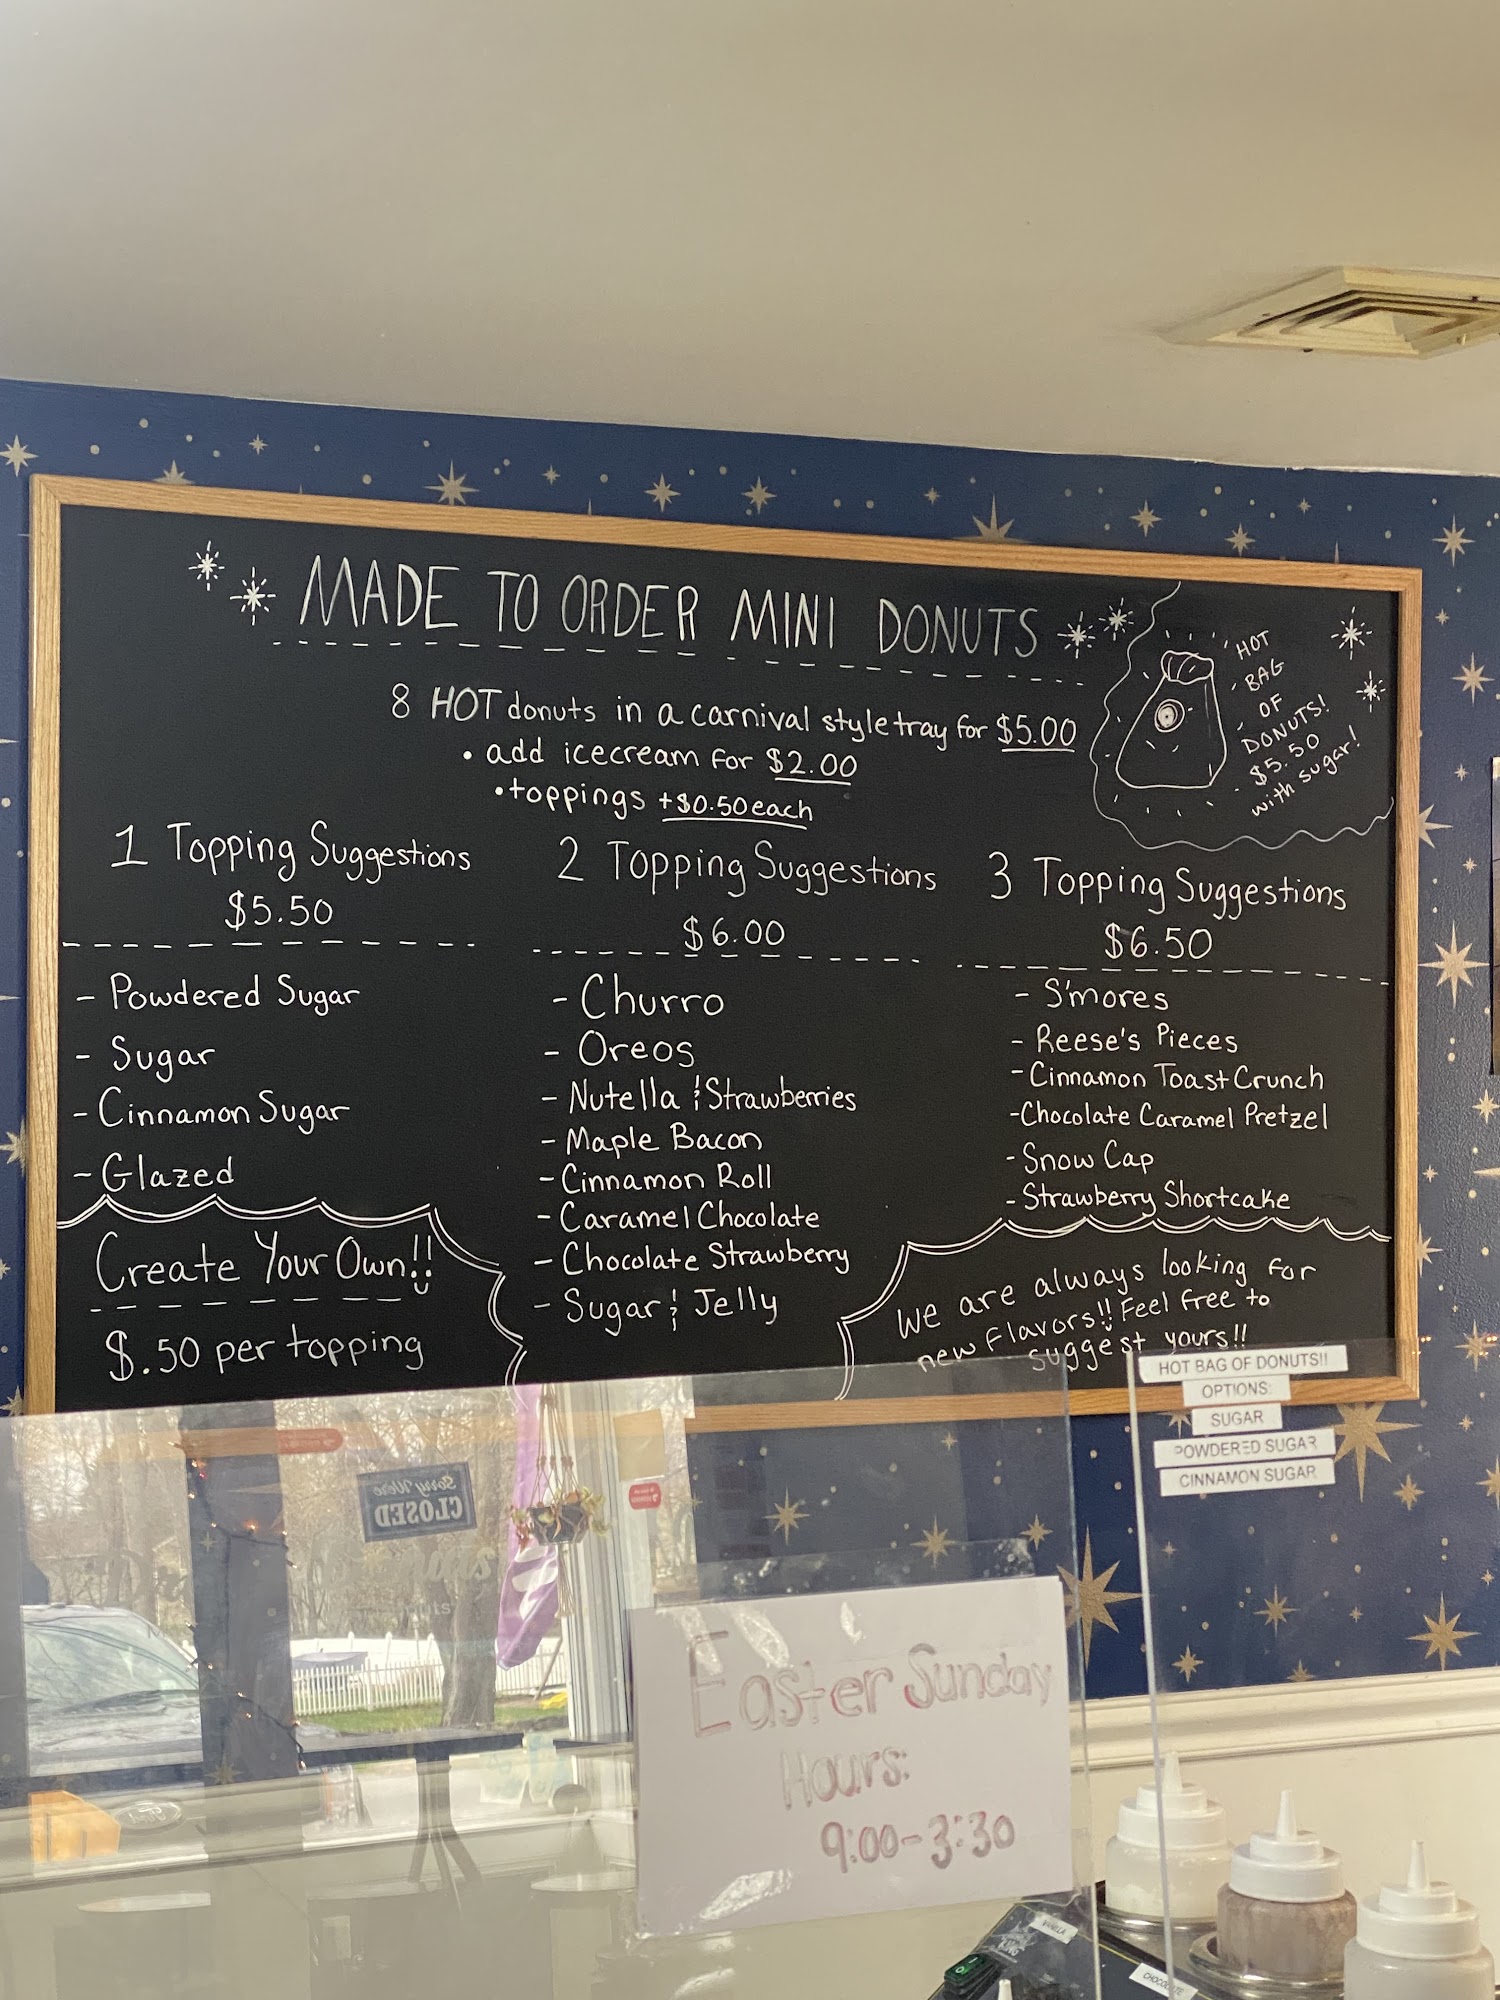 MADE TO ORDER MINI DONUTS
8 HOT donuts in a carnival style tray for $5.00
• add icecream for $2.00
• toppings +$0.50 each
HOT
BAG
OF
DONUTS!
$5.50
with sugar!
1 Topping Suggestions
$5.50
- Powdered Sugar
- Sugar
- Cinnamon Sugar
- Glazed
Create Your Own!!
$.50 per topping
2 Topping Suggestions
$6.00
- Churro
- Oreos
- Nutella & Strawberries
- Maple Bacon
- Cinnamon Roll
- Caramel Chocolate
- Chocolate Strawberry
- Sugar & Jelly
3 Topping Suggestions
$6.50
- S'mores
- Reese's Pieces
- Cinnamon Toast Crunch
- Chocolate Caramel Pretzel
- Snow Cap
- Strawberry Shortcake
We are always looking for
new flavors!! Feel free to
suggest yours!!
HOT BAG OF DONUTS!!
OPTIONS:
SUGAR
POWDERED SUGAR
CINNAMON SUGAR
Sorry We're
CLOSED
Easter Sunday
Hours:
9:00-3:30
VANILLA
CHOCOLATE